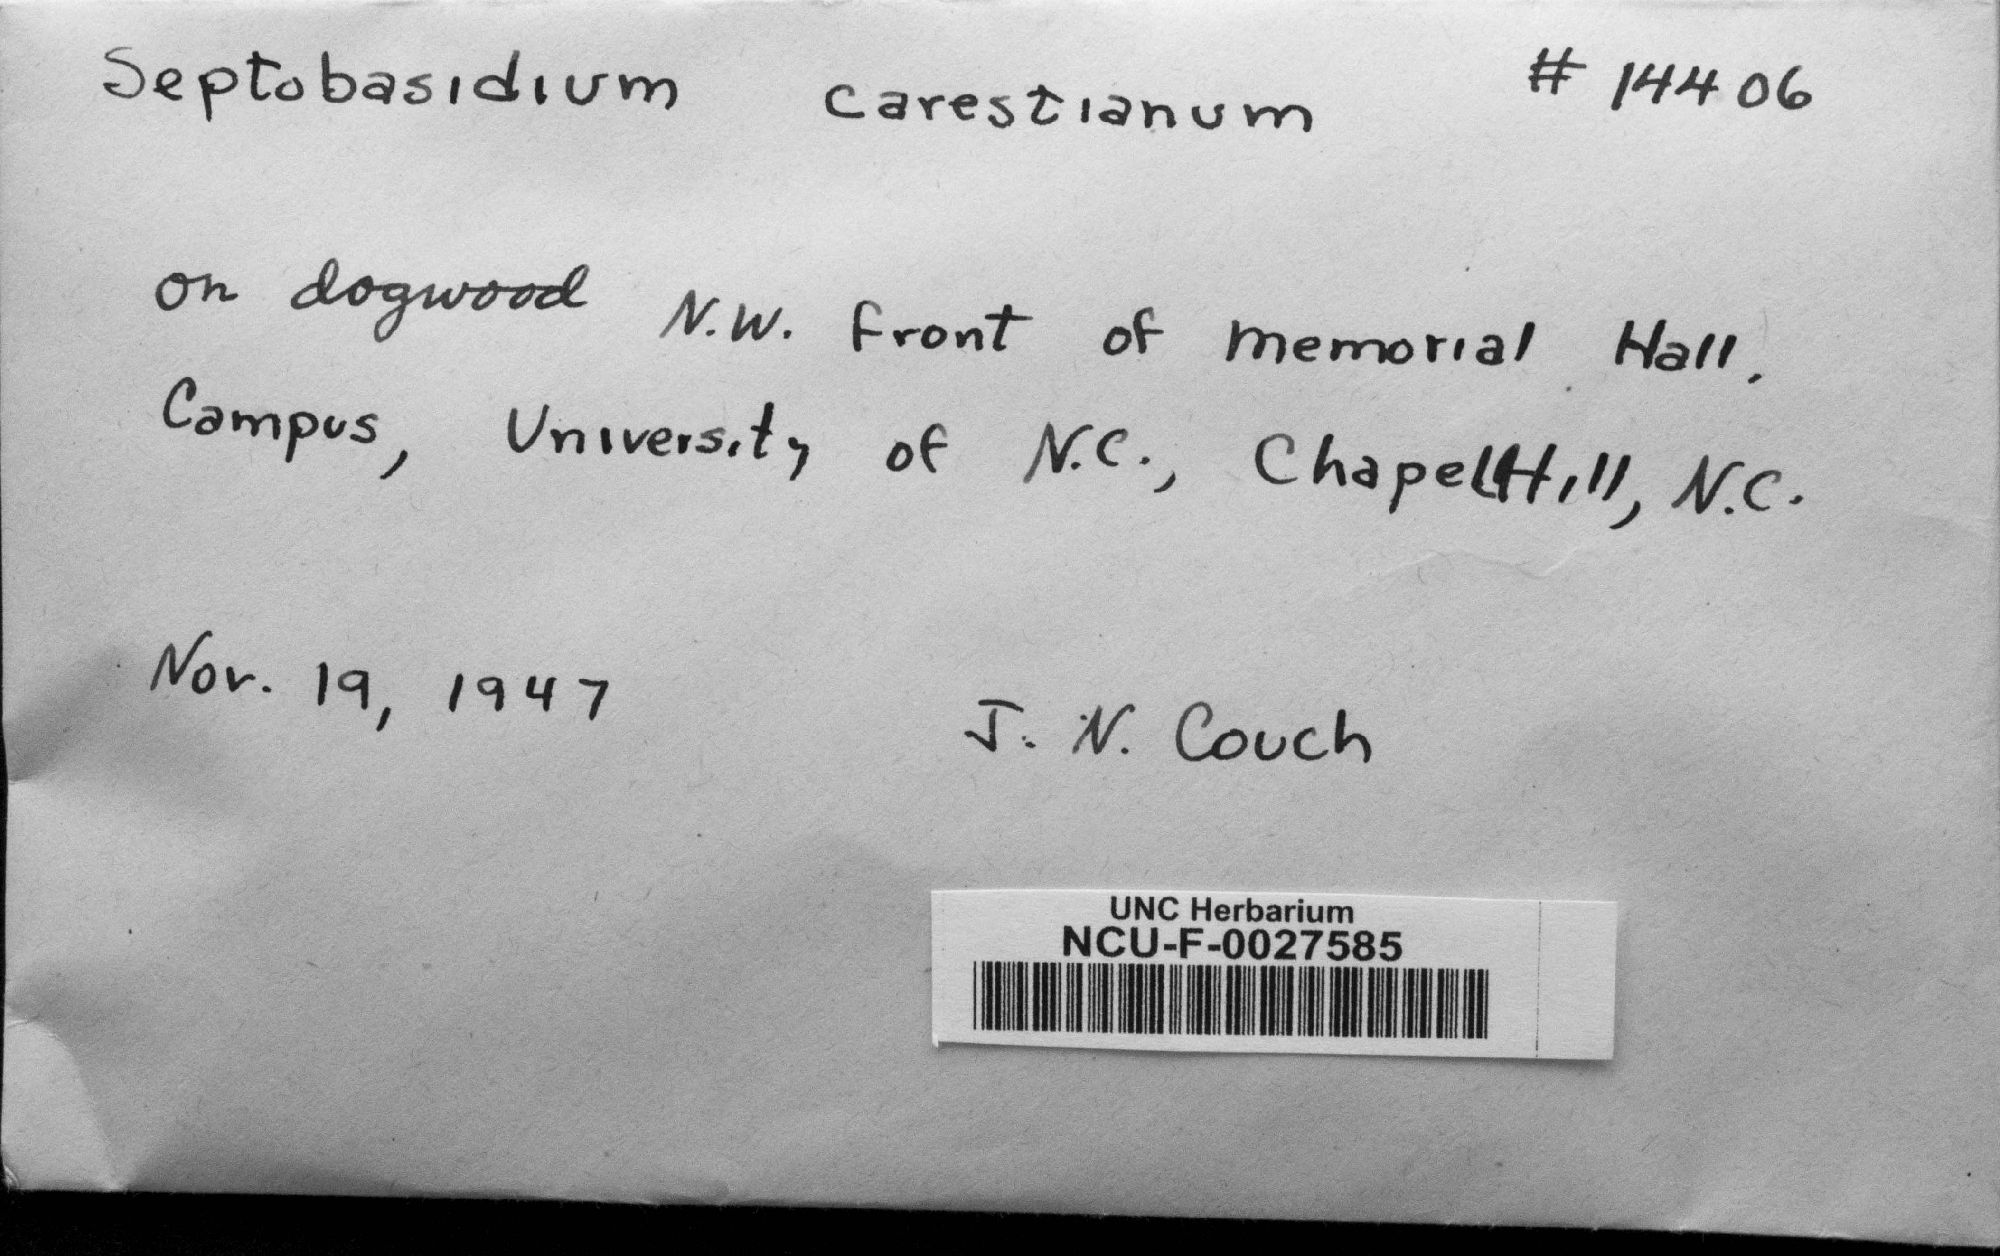 Septobasidium carestianum # 14406
on dogwood N.W. front of Memorial Hall,
Campus, University of N.C., Chapel Hill, N.C.
Nov. 19, 1947 J. N. Couch
UNC Herbarium
NCU-F-0027585